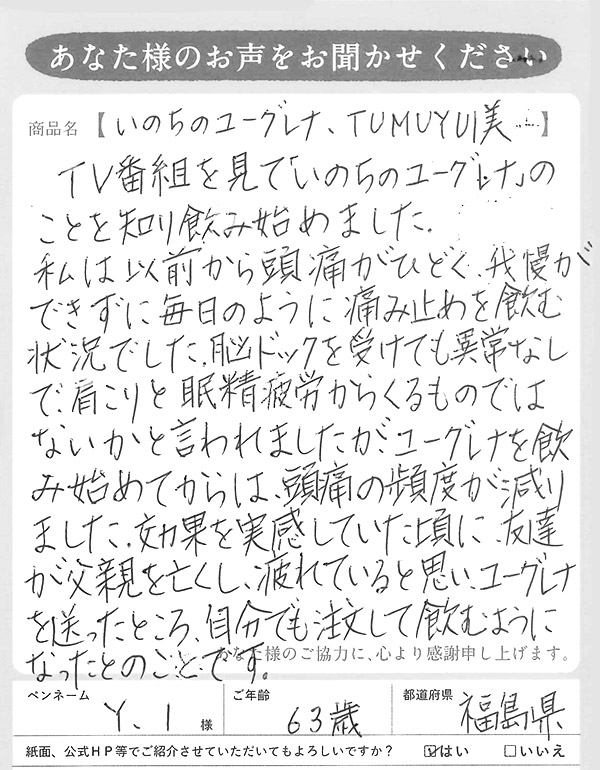 あなた様のお声をお聞かせください
商品名【いのちのユーグレナ、TUMUYUI美】
TV番組を見て「いのちのユーグレナ」の
ことを知り飲み始めました。
私は以前から頭痛がひどく、我慢が
できずに毎日のように痛み止めを飲む
状況でした。脳ドックを受けても異常なし
で、肩こりと眼精疲労からくるものでは
ないかと言われましたが、ユーグレナを飲
み始めてからは、頭痛の頻度が減り
ました。効果を実感していた頃に、友達
が父親を亡くし、疲れていると思い、ユーグレナ
を送ったところ、自分でも注文して飲むように
なったとのことです。
あなた様のご協力に、心より感謝申し上げます。
ペンネーム Y.I 様 ご年齢 63歳 都道府県 福島県
紙面、公式HP等でご紹介させていただいてもよろしいですか? ☑はい □いいえ